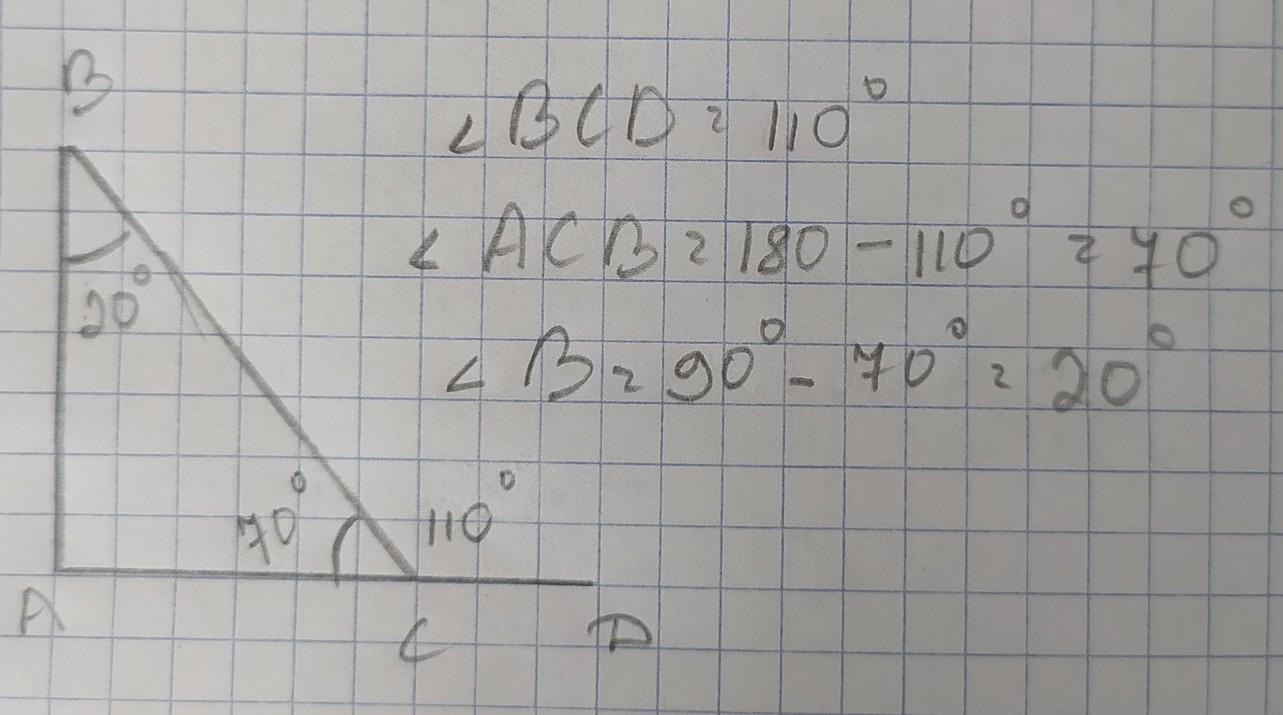 B
∠BCD = 110°
∠ACB = 180 - 110° = 70°
20°
∠B = 90° - 70° = 20°
70° 110°
A C D